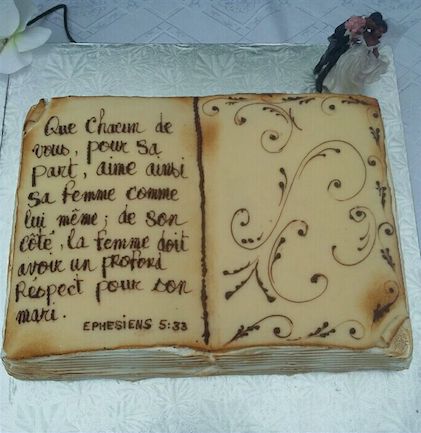 Que Chacun de
vous, pour sa
part, aime ainsi
sa femme comme
lui même; de son
côté, la femme doit
avoir un profond
Respect pour son
mari.
EPHESIENS 5:33